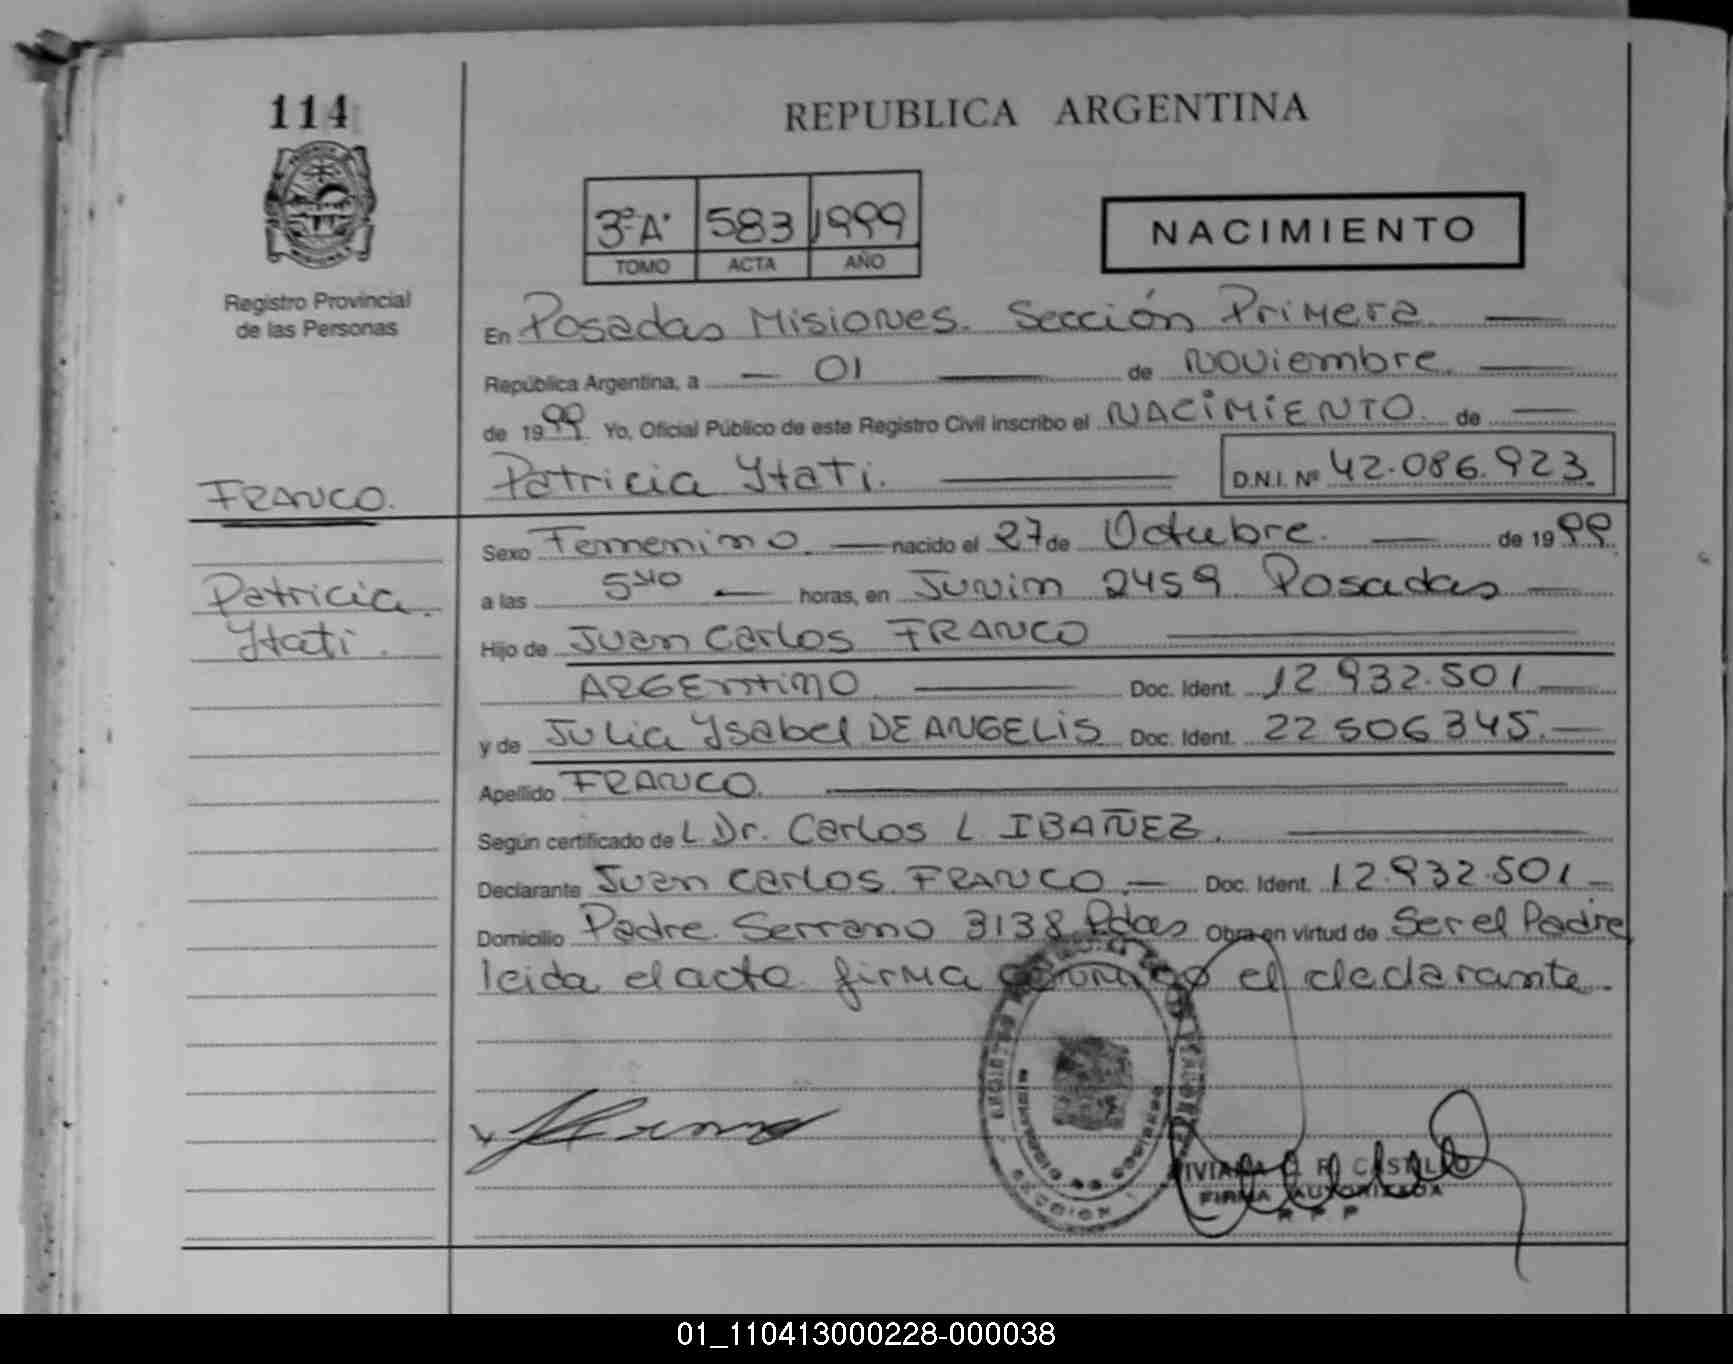 114
REPUBLICA ARGENTINA
3º A' 583 1999
TOMO ACTA AÑO
NACIMIENTO
Registro Provincial
de las Personas
En Posadas Misiones. Sección Primera
República Argentina, a 01 de Noviembre.
de 1999 Yo, Oficial Público de este Registro Civil inscribo el NACIMIENTO de
Patricia Ytati. D.N.I. Nº 42.086.923
FRANCO.
Sexo Femenino nacido el 27 de Octubre. de 1999
Patricia
Ytati.
a las 5 40 horas, en Junin 2459 Posadas
Hijo de Juan Carlos FRANCO
ARGENTINO Doc. Ident. 12.932.501
y de Julia Ysabel DE ANGELIS Doc. Ident. 22 506 345.
Apellido FRANCO.
Según certificado de L Dr. Carlos L. IBAÑEZ.
Declarante Juan Carlos FRANCO Doc. Ident. 12.932.501
Domicilio Padre Serrano 3138 Pdas Obra en virtud de Ser el Padre
leida el acta firma conmigo el declarante.
CASTILLO
FIRMA AUTORIZADA
R P P
01_110413000228-000038